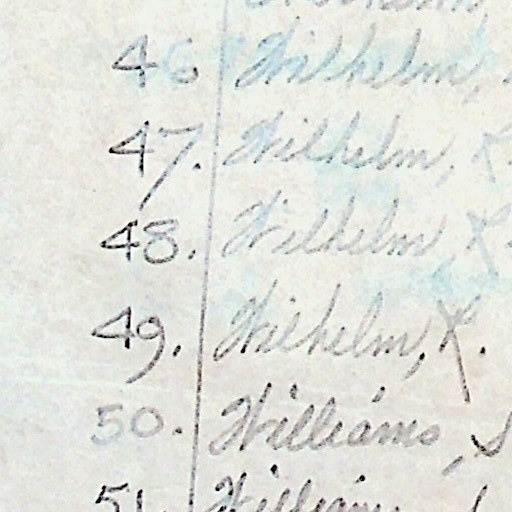 46 Wilhelm,
47. Wilhelm, K
48. Wilhelm, K
49. Wilhelm, K.
50. Williams, S
51. William